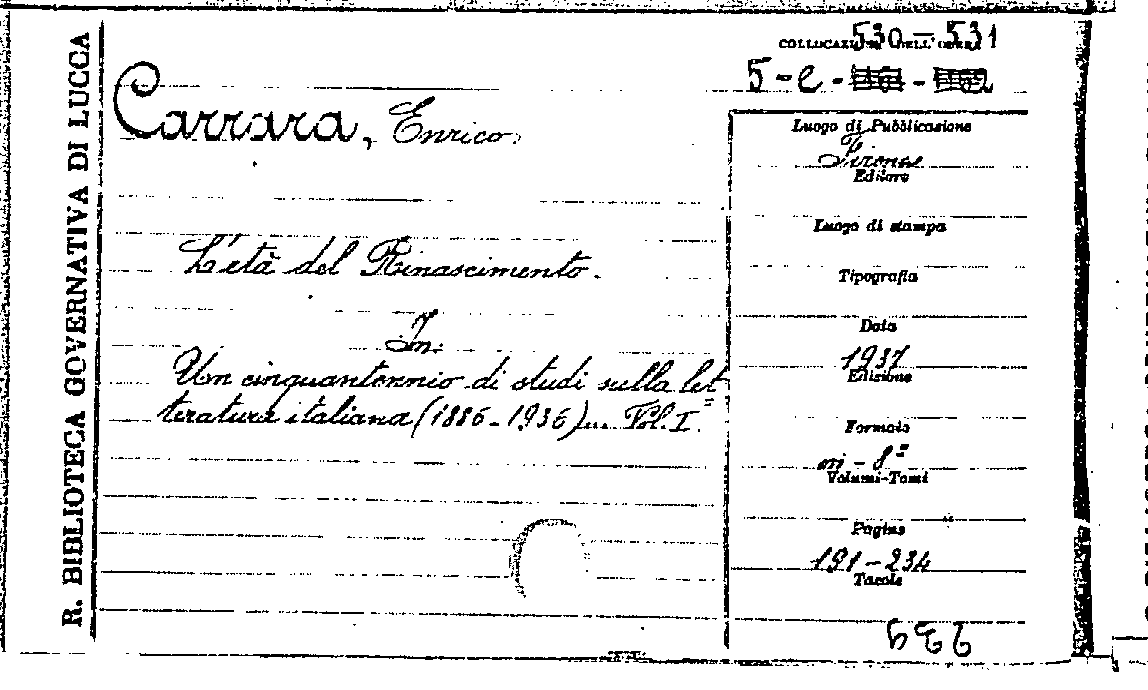 R. BIBLIOTECA GOVERNATIVA DI LUCCA
530-531
COLLOCAZIONE DELL'OPERA
5-e-
Carrara, Enrico.
L'età del Rinascimento.
In:
Un cinquantennio di studi sulla let=
teratura italiana (1886-1936)... Vol. I.
Luogo di Pubblicazione
Firenze
Editore
Luogo di stampa
Tipografia
Data
1937
Edizione
Formato
in-8º
Volumi-Tomi
Pagine
191-234
Tavole